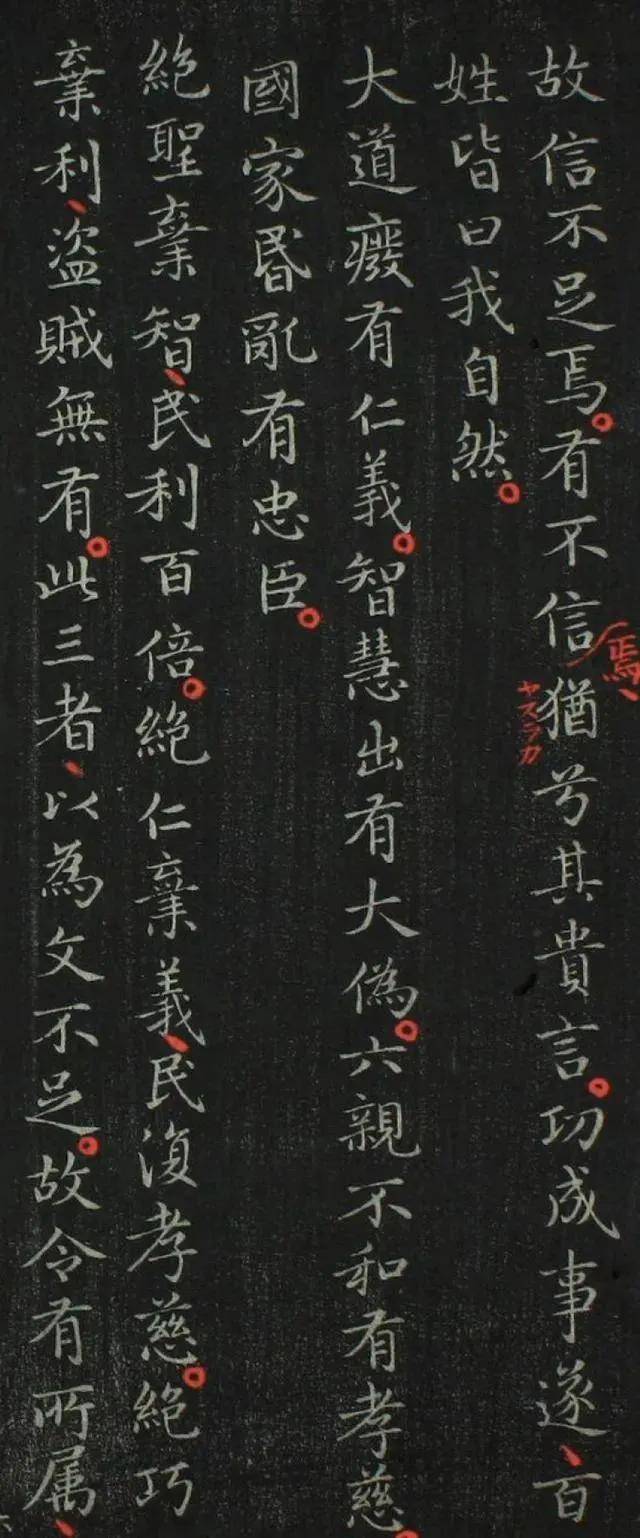 故信不足焉。有不信猶兮其貴言。功成事遂、百
焉、
ヤスラカ
姓皆曰我自然。
大道癈有仁義。智慧出有大偽。六親不和有孝慈。
國家昬亂有忠臣。
絶聖棄智、民利百倍。絶仁棄義、民復孝慈。絶巧
棄利、盗賊無有。此三者、以為文不足。故令有所属、